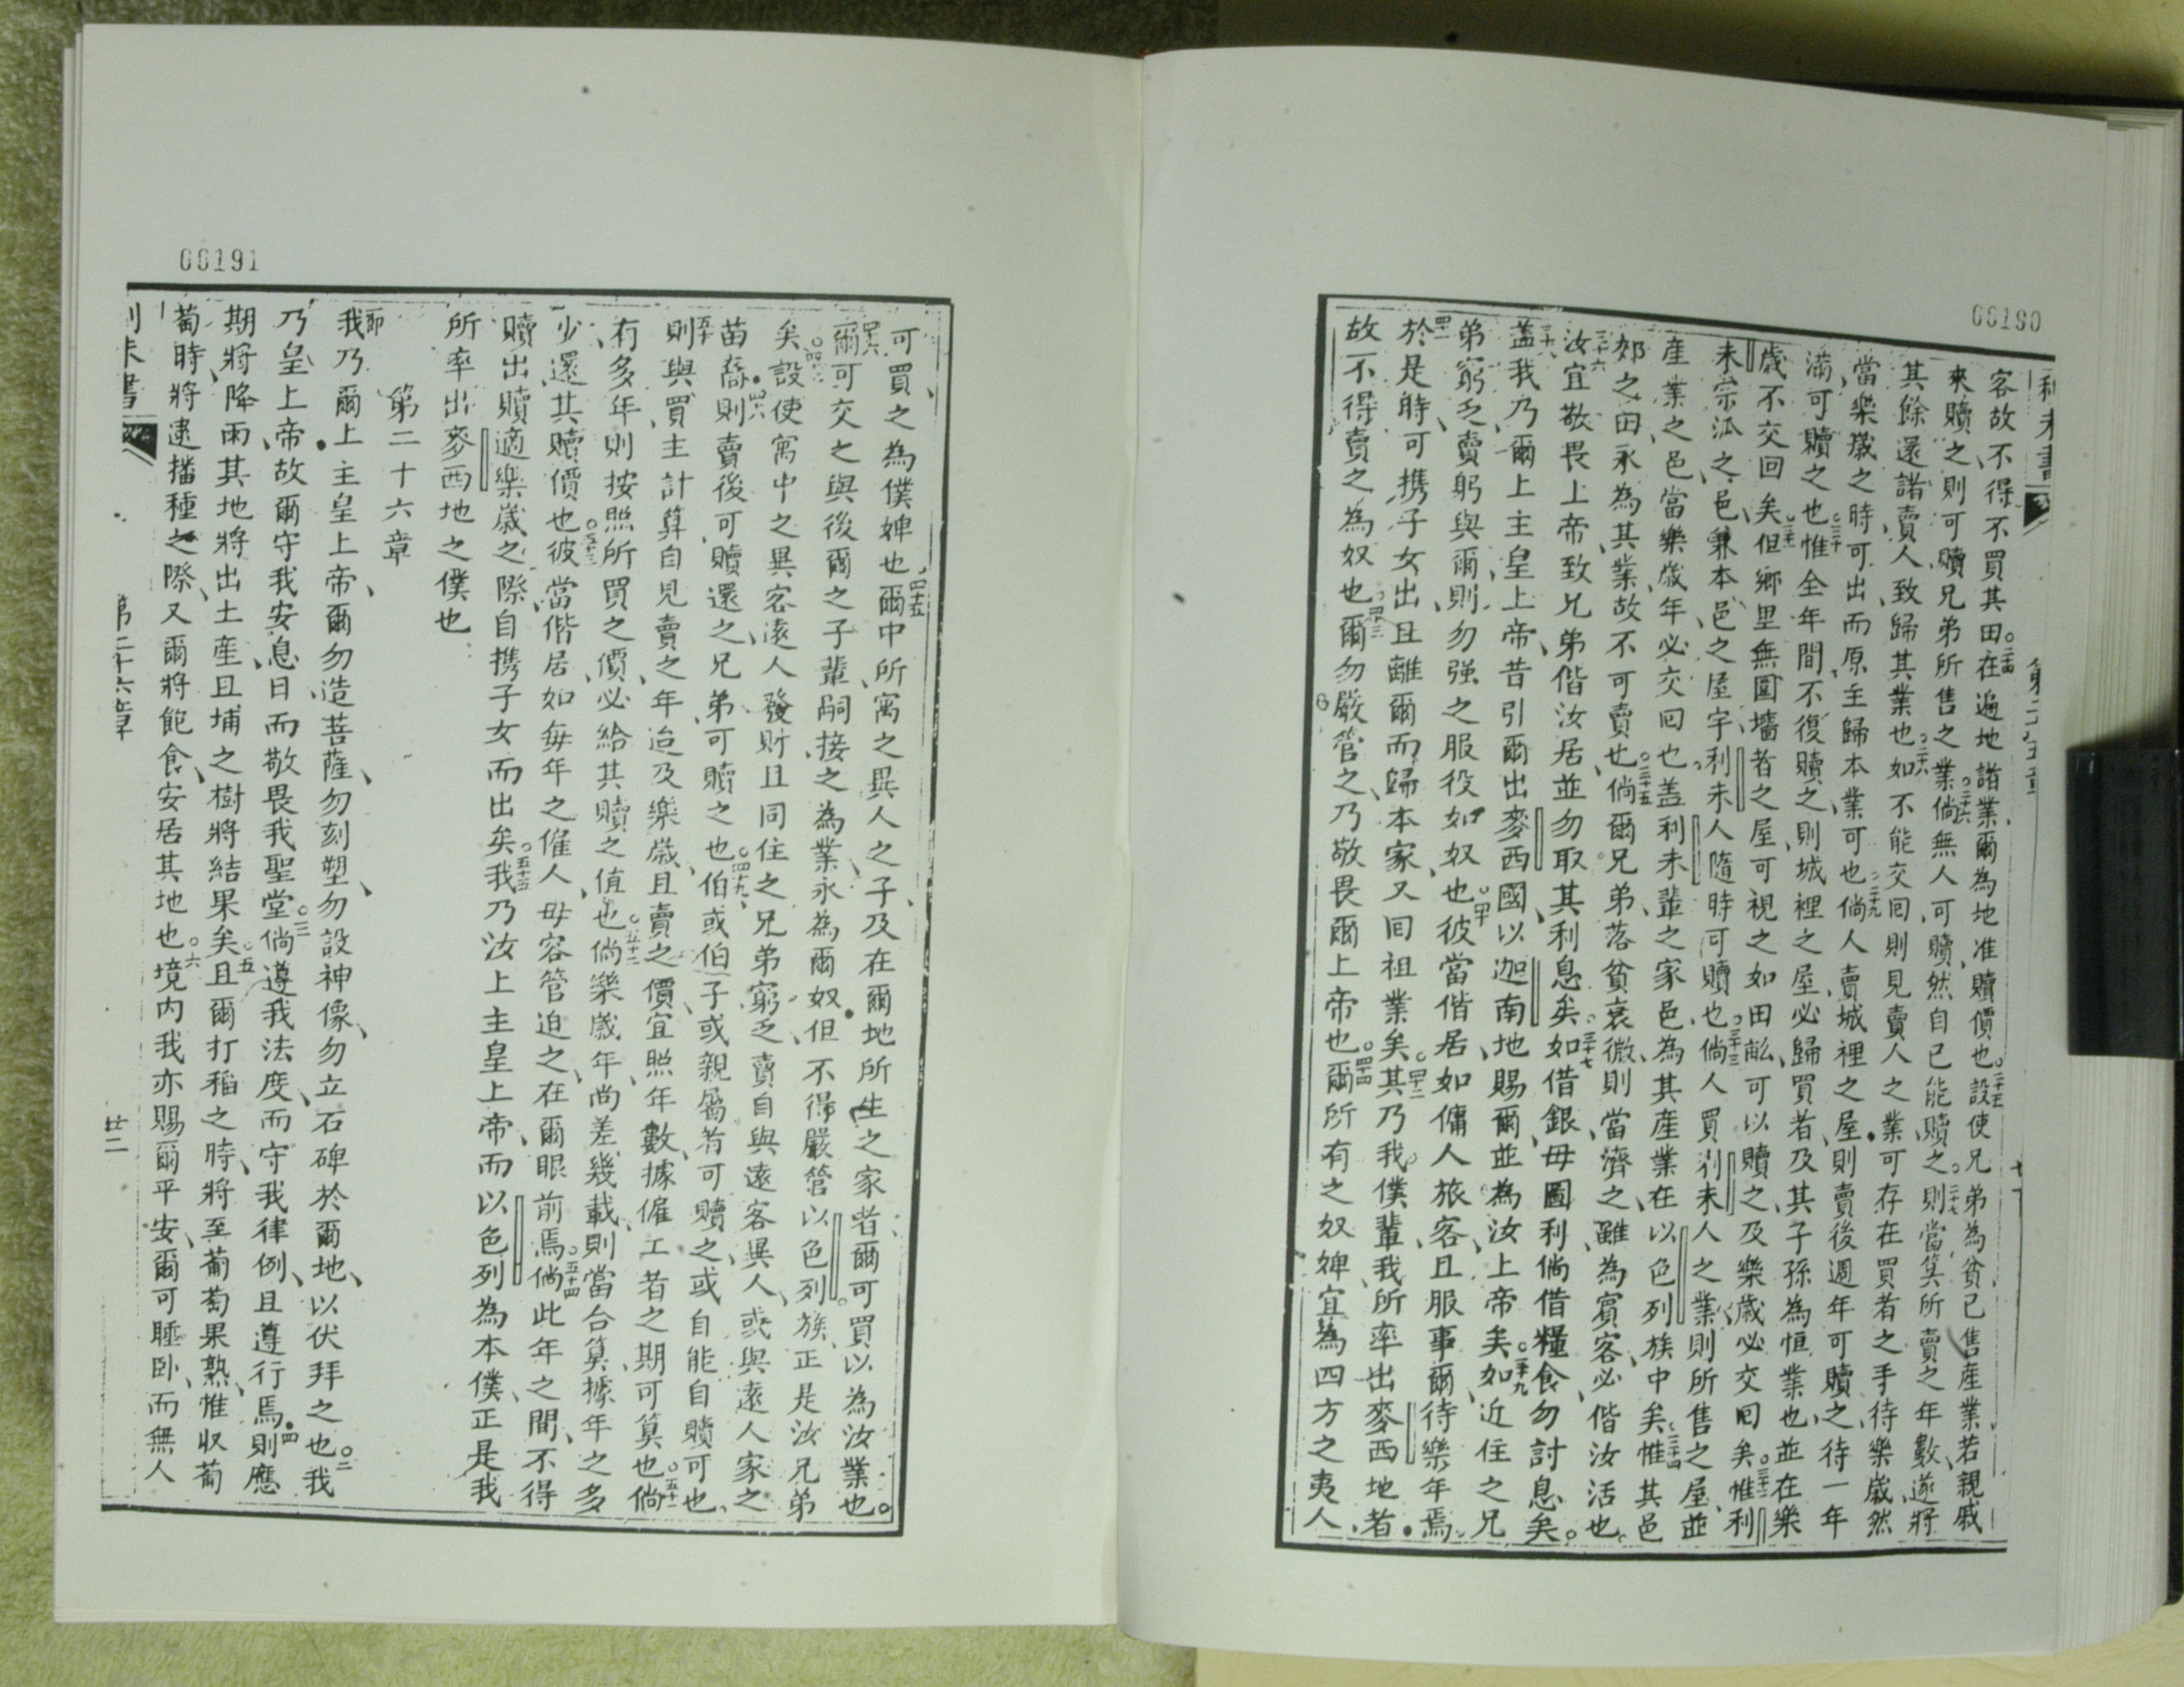 00190
利未書
第二十五章
客故不得不買其田。二十四在遍地諸業爾為地准贖價也。二十五設使兄弟為貧已售產業若親戚
來贖之則可贖兄弟所售之業。二十六倘無人可贖然自已能贖之。二十七則當算所賣之年數遂將
其餘還諸賣人致歸其業也。二十八如不能交囘則見賣人之業可存在買者之手待樂歲然
當樂歲之時可出而原主歸本業可也。二十九倘人賣城裡之屋則賣後週年可贖之待一年
滿可贖之也。三十惟全年間不復贖之則城裡之屋必歸買者及其子孫為恒業也並在樂
歲不交回矣。三十一但鄉里無圍墻者之屋可視之如田畝可以贖之及樂歲必交囘矣。三十二惟利
未宗派之邑兼本邑之屋宇利未人隨時可贖也。三十三倘人買利未人之業則所售之屋並
產業之邑當樂歲年必交囘也盖利未輩之家邑為其產業在以色列族中矣。三十四惟其邑
郊之田永為其業故不可賣也。三十五倘爾兄弟落貧衰微則當濟之雖為賓客必偕汝活也。
三十六汝宜敬畏上帝致兄弟偕汝居並勿取其利息矣。三十七如借銀毋圖利倘借糧食勿討息矣。
三十八盖我乃爾上主皇上帝昔引爾出麥西國以迦南地賜爾並為汝上帝矣。三十九如近住之兄
弟窮乏賣躬與爾則勿强之服役如奴也。四十彼當偕居如傭人旅客且服事爾待樂年焉。
四十一於是時可携子女出且離爾而歸本家又囘祖業矣。四十二其乃我僕輩我所率出麥西地者
故不得賣之為奴也。四十三爾勿嚴管之乃敬畏爾上帝也。四十四爾所有之奴婢宜為四方之夷人
00191
可買之為僕婢也。四十五爾中所寓之異人之子及在爾地所生之家者爾可買以為汝業也。
四十六爾可交之與後爾之子輩嗣接之為業永為爾奴但不得嚴管以色列族正是汝兄弟
矣。四十七設使寓中之異客遠人發財且同住之兄弟窮乏賣自與遠客異人或與遠人家之
苗裔。四十八則賣後可贖還之兄弟可贖之也。四十九伯或伯子或親屬若可贖之或自能自贖可也
五十則與買主計算自見賣之年迨及樂歲且賣之價宜照年數據僱工者之期可算也。五十一倘
有多年則按照所買之價必給其贖之值也。五十二倘樂歲年尚差幾載則當合算據年之多
少還其贖價也。五十三彼當偕居如每年之僱人毋容管迫之在爾眼前焉。五十四倘此年之間不得
贖出贖適樂歲之際自携子女而出矣。五十五我乃汝上主皇上帝而以色列為本僕正是我
所率出麥西地之僕也
第二十六章
一節我乃爾上主皇上帝爾勿造菩薩勿刻塑勿設神像勿立石碑於爾地以伏拜之也。二我
乃皇上帝故爾守我安息日而敬畏我聖堂。三倘遵我法度而守我律例且遵行焉。四則應
期將降雨其地將出土產且埔之樹將結果矣。五且爾打稻之時將至葡萄果熟惟收葡
萄時將逮播種之際又爾將飽食安居其地也。六境內我亦賜爾平安爾可睡卧而無人
利未書
第二十六章
廿二